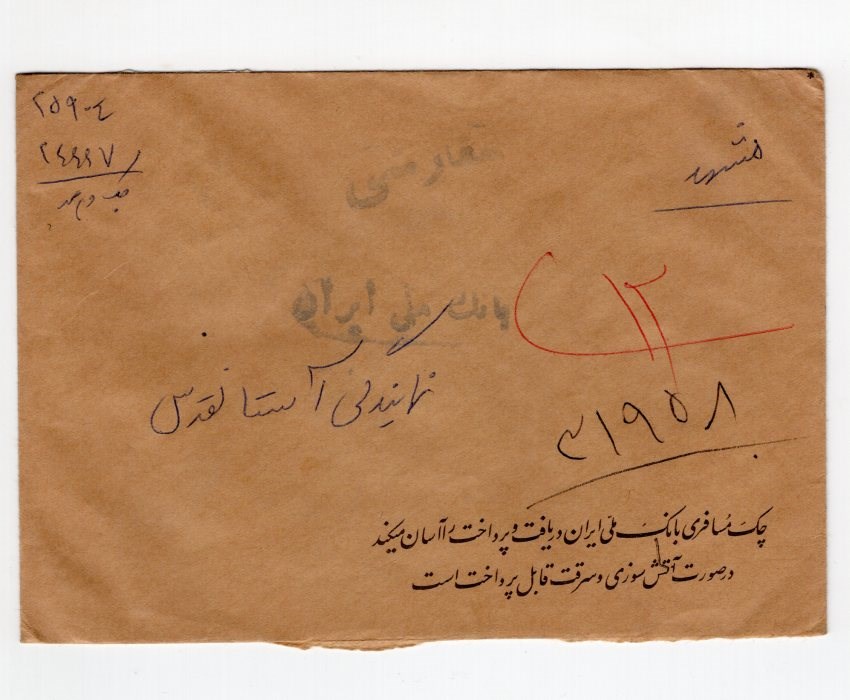 مشهد
۲۵۹-٤
۲٤۹۹۷
سفارشی
۱۲
بانک ملی ایران
نمایندگی آستانقدس
۳۱۹۵۸
چک مسافری بانک ملّی ایران دریافت و پرداخت را آسان میکند
در صورت آتش سوزی و سرقت قابل پرداخت است